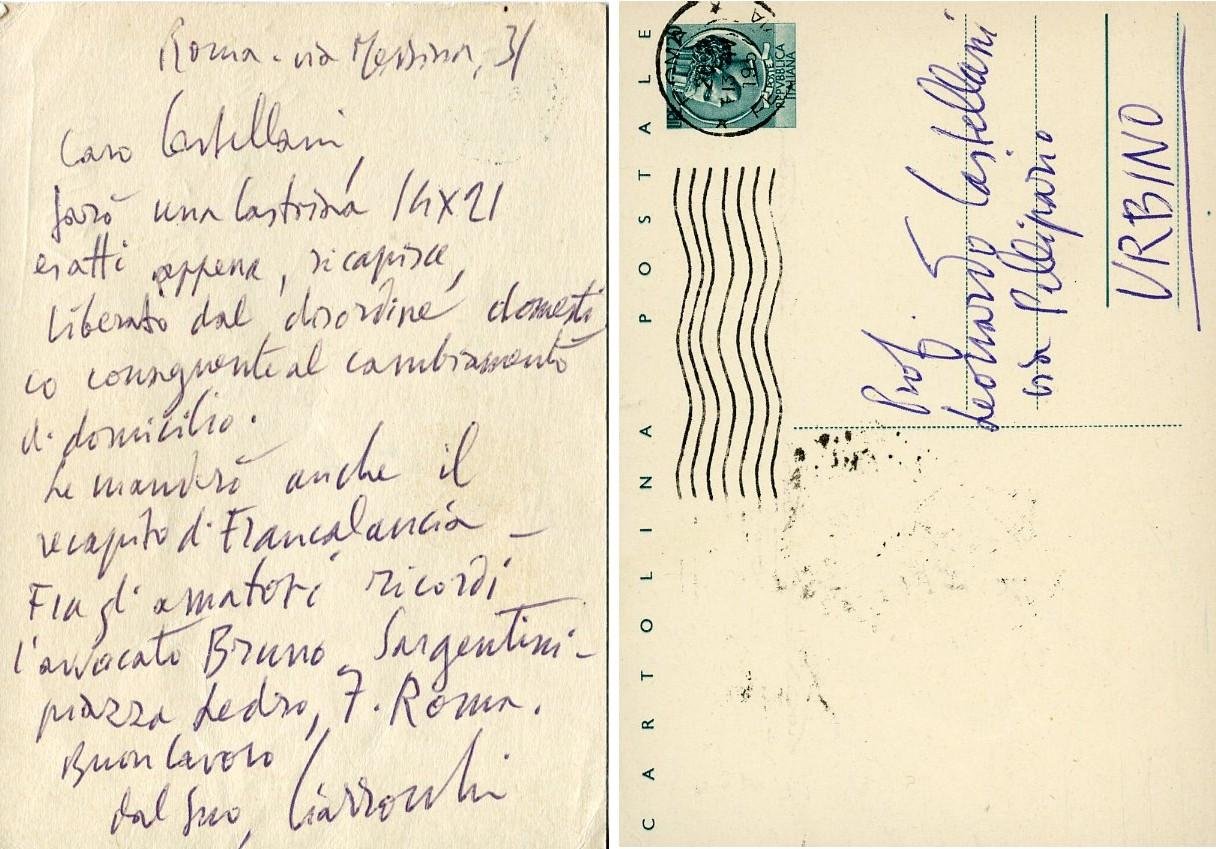 Roma - via Messina, 31
Caro Castellani,
farò una lastrina 14x21
esatti appena, si capisce,
liberato dal disordine domesti
co conseguente al cambiamento
di domicilio.
Le manderò anche il
recapito di Francalancia –
Fra gli amatori ricordi
l'avvocato Bruno Sargentini –
piazza Ledro, 7. Roma.
Buon lavoro
dal suo, Ciarrocchi
CARTOLINA POSTALE
REPVBBLICA
ITALIANA
POSTE
Prof.
Leonardo Castellani
via Pellipario
URBINO